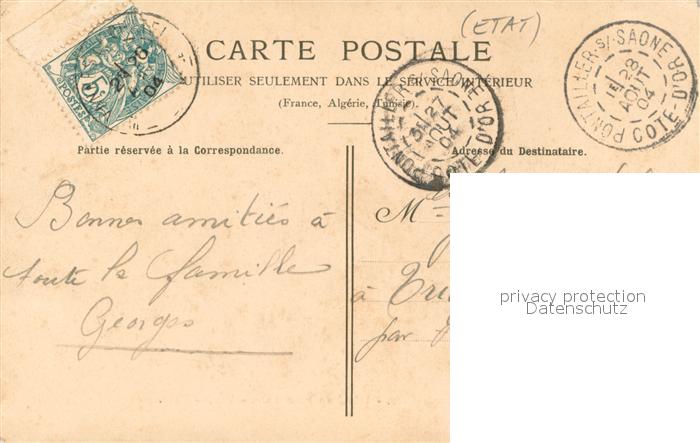 (ETAT)
CARTE POSTALE
UTILISER SEULEMENT DANS LE SERVICE INTÉRIEUR
(France, Algérie, Tunisie).
5c
POSTES
26
04
PONTAILLER-S/-SAONE
27
AOUT
04
COTE D'OR
PONTAILLER-S/-SAONE
28
AOUT
04
COTE D'OR
Partie réservée à la Correspondance.
Adresse du Destinataire.
Bonnes amitiés à
toute la famille
Georges
M
à
par
privacy protection
Datenschutz